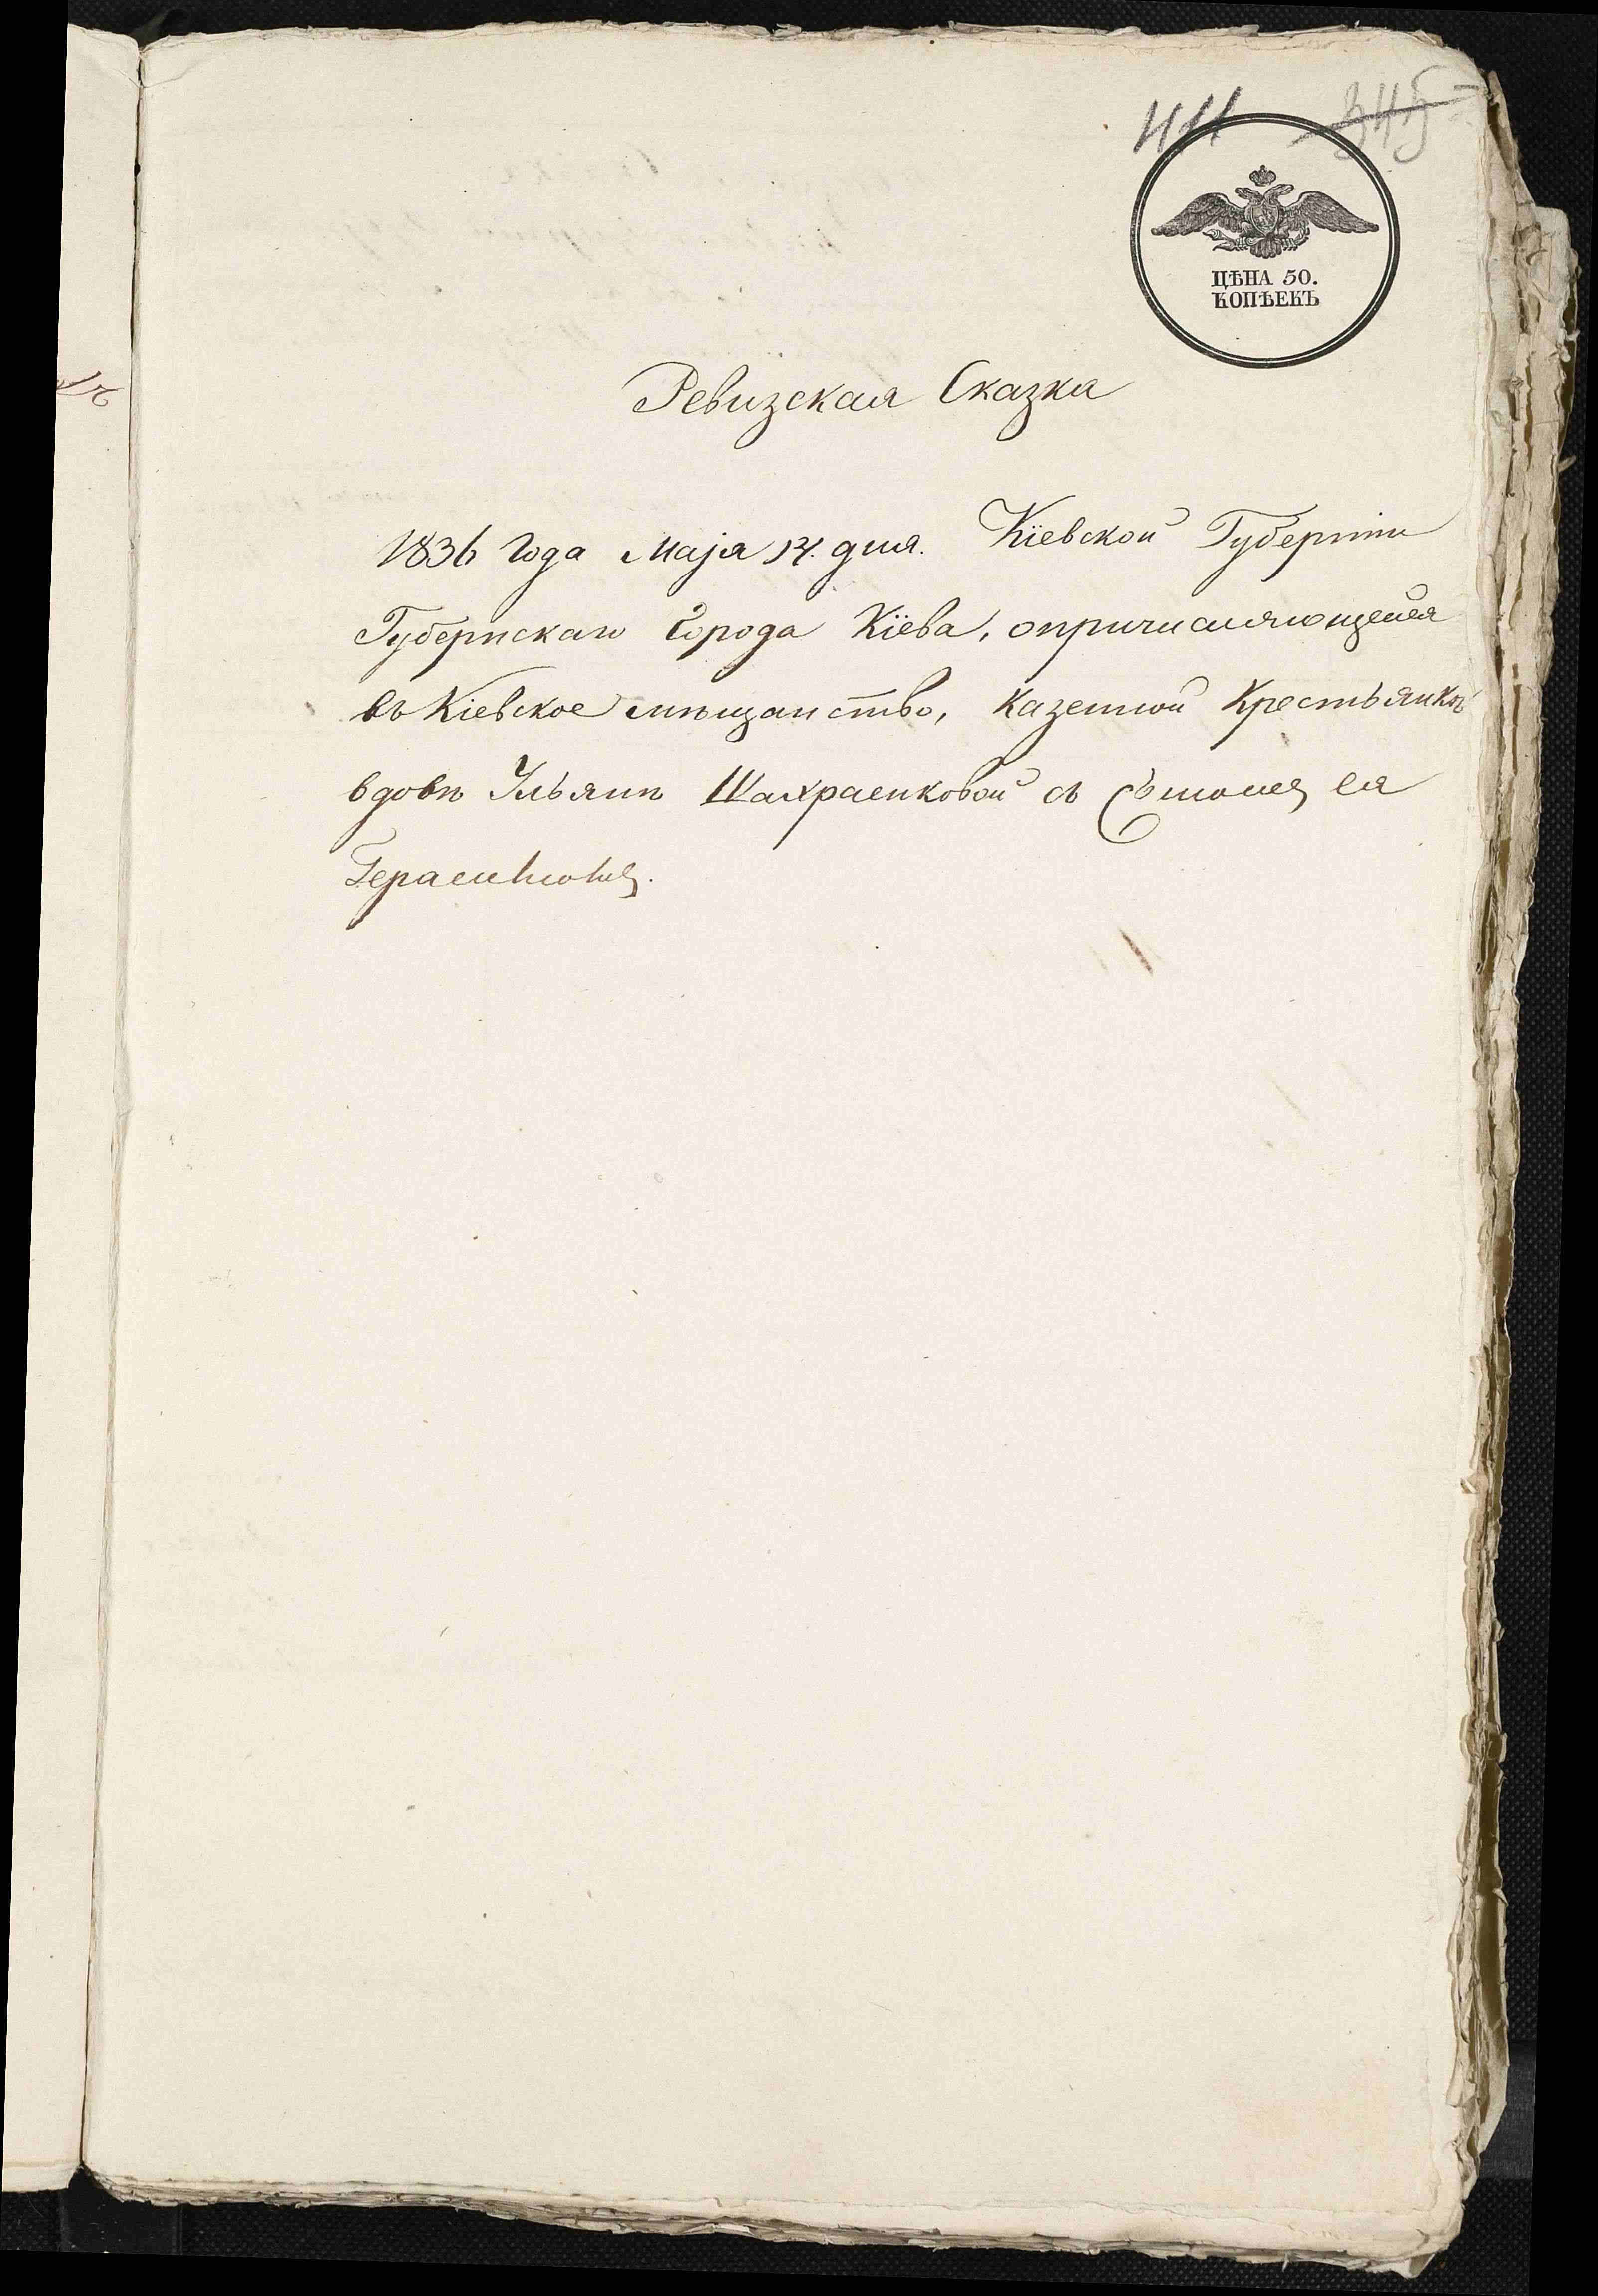 411 345
ЦѢНА 50.
КОПѢЕКЪ
Ревизская Сказка
1836 Года Маjя 14. дня. Кіевской Губерніи
Губернскаго Города Кіева, опричисляющейся
въ Кіевское мѣщанство, Казенной Крестьянкѣ
вдовѣ Ульянѣ Шахраенковой съ Сыномъ ея
Герасимомъ.